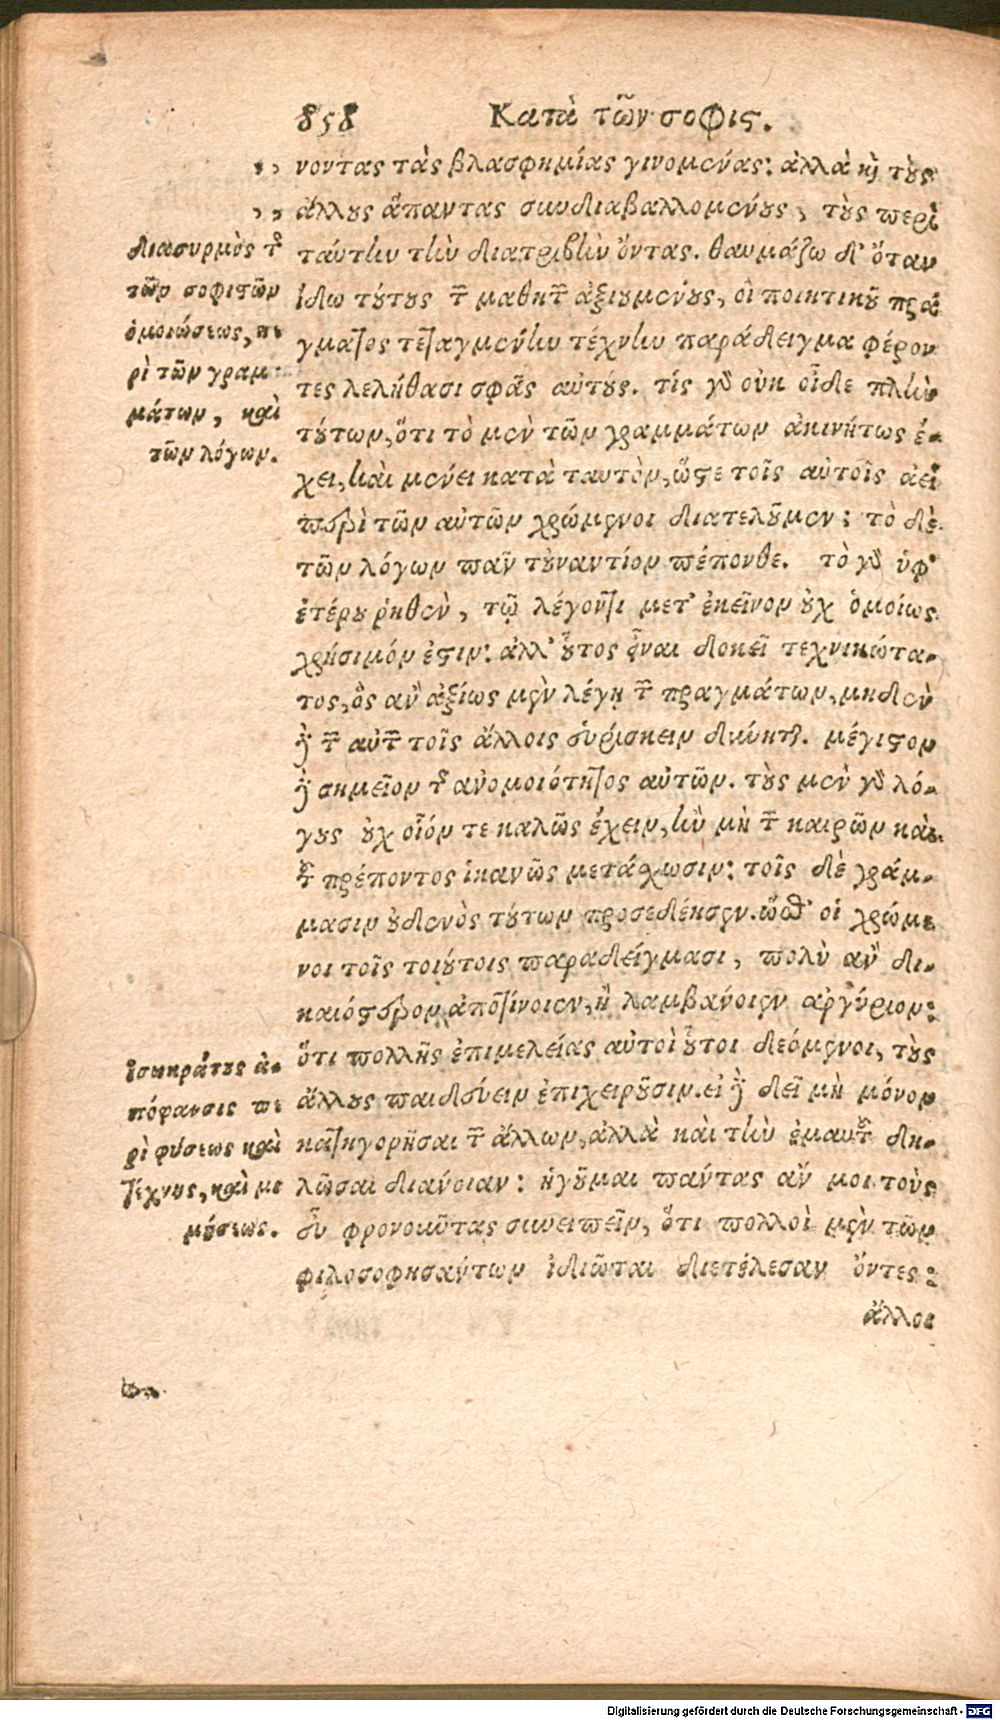 858 Κατὰ τῶν σοφις.
,, νοντας τὰς βλασφημίας γινομένας: ἀλλὰ κὶ τοὺς
,, ἄλλους ἅπαντας συνδιαβαλλομένους, τοὺς περὶ
ταύτην τὴν διατριβὴν ὄντας. θαυμάζω δ' ὅταν
ἴδω τούτους τῶν μαθητῶν ἀξιουμένους, οἳ ποιητικοῦ πρά
γματος τεταγμένην τέχνην παράδειγμα φέρον
τες λελήθασι σφᾶς αὐτούς. τίς γὰρ οὐκ οἶδε πλὴν
τούτων, ὅτι τὸ μὲν τῶν γραμμάτων ἀκινήτως ἔ-
χει, καὶ μένει κατὰ ταυτὸν, ὥστε τοῖς αὐτοῖς ἀεὶ
περὶ τῶν αὐτῶν χρώμενοι διατελοῦμεν: τὸ δὲ
τῶν λόγων πᾶν τοὐναντίον πέπονθε. τὸ γὰρ ὑφ'
ἑτέρου ῥηθὲν, τῷ λέγοντι μετ' ἐκεῖνον οὐχ ὁμοίως
χρήσιμόν ἐστιν: ἀλλ' οὗτος εἶναι δοκεῖ τεχνικώτα-
τος, ὃς ἂν ἀξίως μὲν λέγῃ τῶν πραγμάτων, μηδὲν
δὲ τῶν αὐτῶν τοῖς ἄλλοις εὑρίσκειν δύνηται. μέγιστον
δὲ σημεῖον τῆς ἀνομοιότητος αὐτῶν. τοὺς μὲν γὰρ λό-
γους οὐχ οἷόν τε καλῶς ἔχειν, ἢν μὴ τῶν καιρῶν καὶ
τοῦ πρέποντος ἱκανῶς μετάχωσιν: τοῖς δὲ γράμ-
μασιν οὐδενὸς τούτων προσεδέησεν. ὥσθ' οἱ χρώμε
νοι τοῖς τοιούτοις παραδείγμασι, πολὺ ἂν δι-
καιότερον ἀποτίνοιεν, ἢ λαμβάνοιεν ἀργύριον:
ὅτι πολλῆς ἐπιμελείας αὐτοὶ οὗτοι δεόμενοι, τοὺς
ἄλλους παιδεύειν ἐπιχειροῦσιν. εἰ δὲ δεῖ μὴ μόνον
κατηγορῆσαι τῶν ἄλλων, ἀλλὰ καὶ τὴν ἐμαυτοῦ δη-
λῶσαι διάνοιαν: ἡγοῦμαι πάντας ἄν μοι τοὺς
εὖ φρονοῦντας συνειπεῖν, ὅτι πολλοὶ μὲν τῶν
φιλοσοφησάντων ἰδιῶται διετέλεσαν ὄντες:
ἄλλοι
διασυρμὸς τῆς
τῶν σοφιτῶν
ὁμοιώσεως, πε
ρὶ τῶν γραμ
μάτων, καὶ
τῶν λόγων.
ἰσοκράτους ἀ-
πόφανσις πε
ρὶ φύσεως καὶ
τέχνης, καὶ με
Digitalisierung gefördert durch die Deutsche Forschungsgemeinschaft - DFG